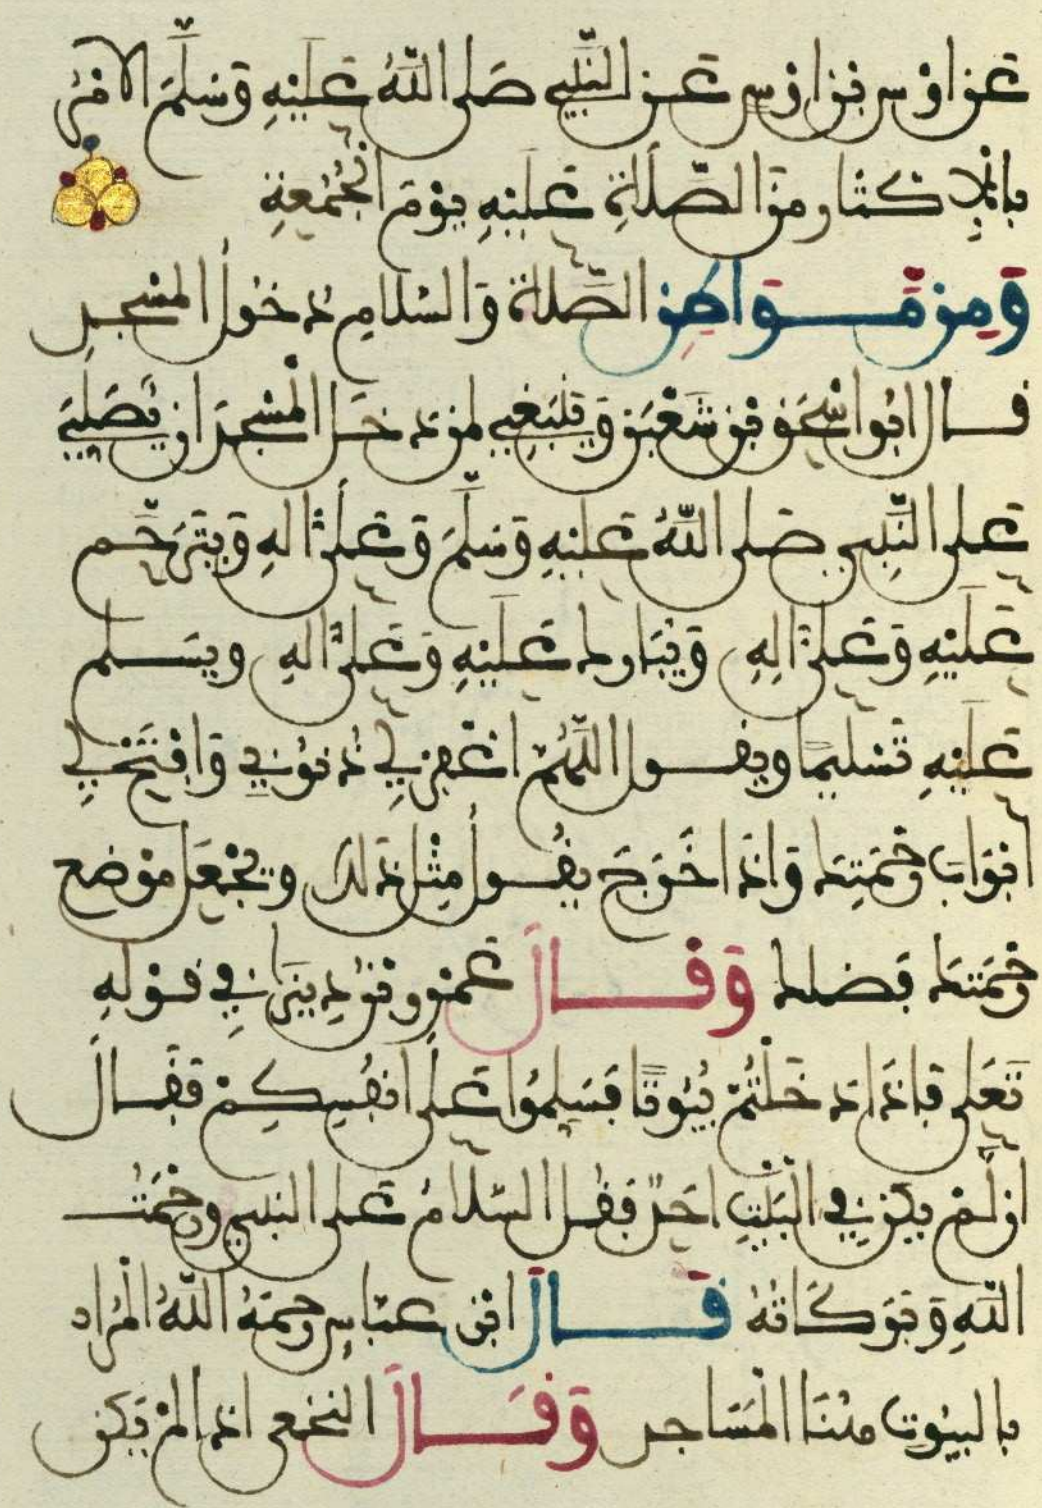 عن اوس بن اوس عن النبي صلى الله عليه وسلم الامر
بالاكثار من الصلاة عليه يوم الجمعة
ومن مواطن الصلاة والسلام دخول المسجد
قال ابو اسحق بن شعبن وينبغي لمن دخل المسجد ان يصلي
على النبي صلى الله عليه وسلم وعلى اله ويترحم
عليه وعلى اله ويبارك عليه وعلى اله ويسلم
عليه تسليما ويقول اللهم اغفر لي ذنوبي وافتح لي
ابواب رحمتك واذا خرج يقول مثل ذلك ويجعل موضع
رحمتك فضلك وقال عمرو بن دينار في قوله
تعلى فاذا دخلتم بيوتا فسلموا على انفسكم فقال
ان لم يكن في البيت احد فقل السلام على النبي ورحمت
الله وبركاته قال ابن عباس رحمه الله المراد
بالبيوت هنا المساجد وقال النخعي اذا لم يكن